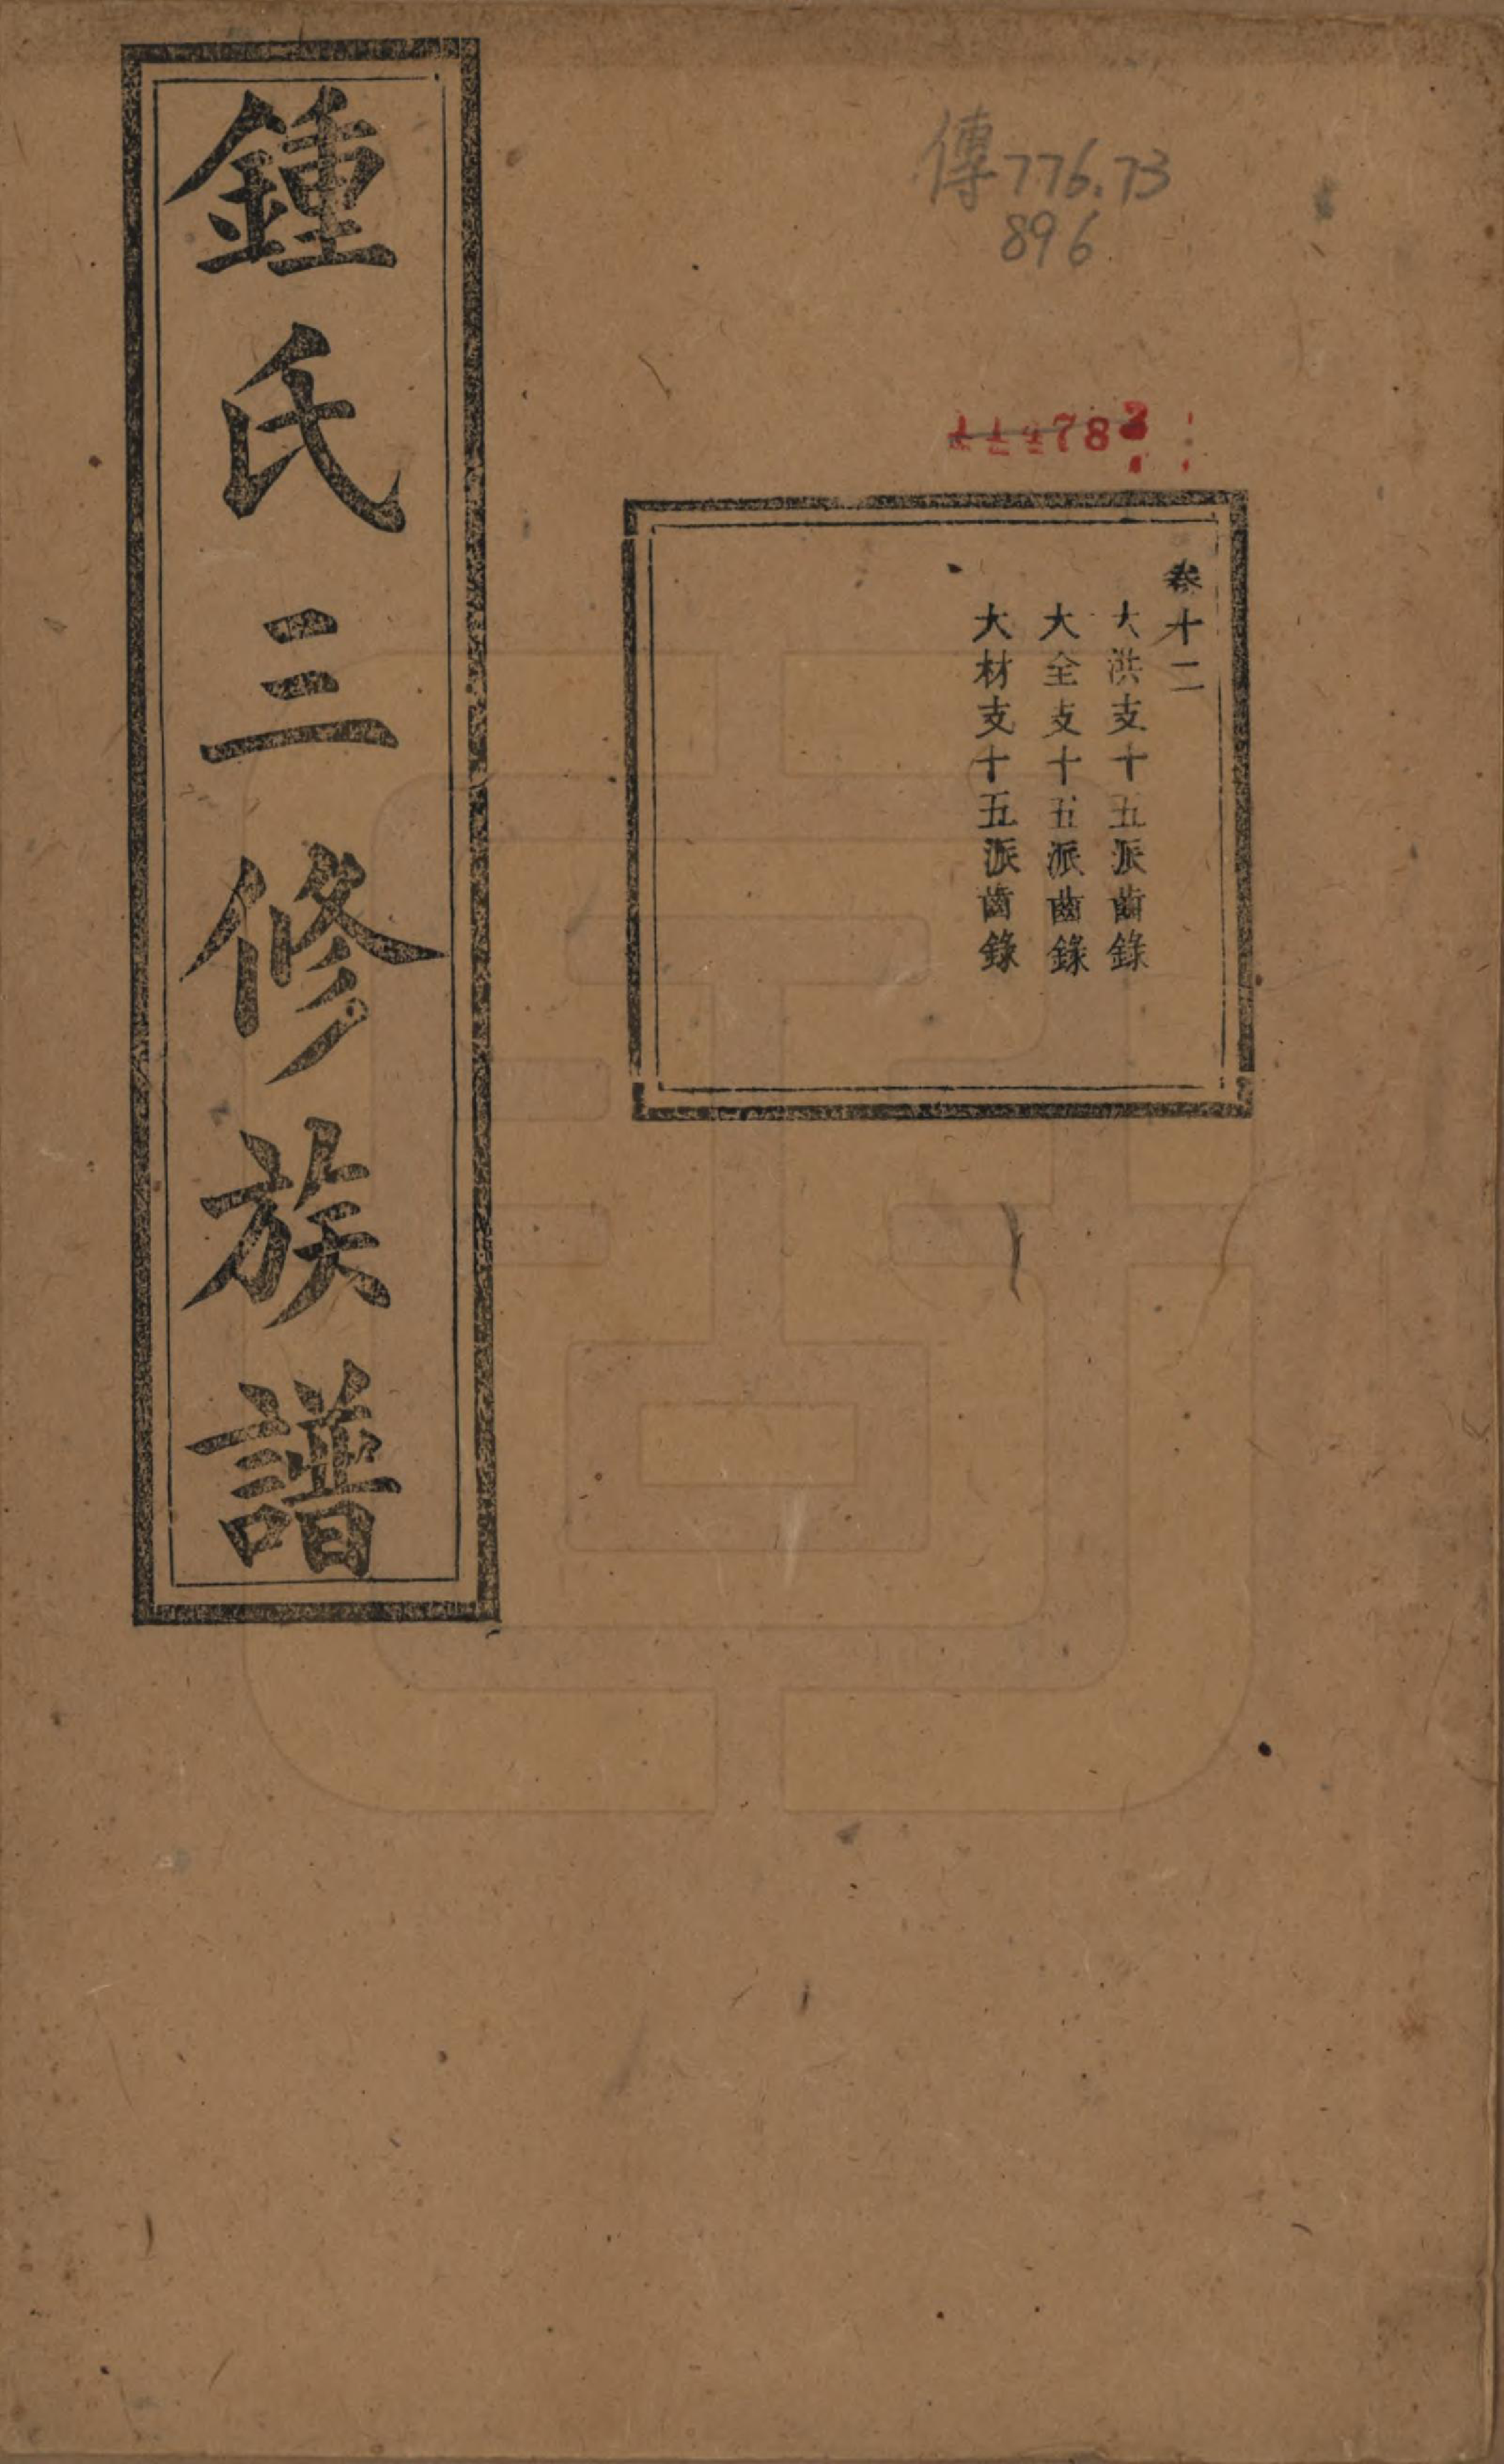 鍾氏三修族譜
傳776.73
896
卷十二
大洪支十五派齒錄
大全支十五派齒錄
大材支十五派齒錄